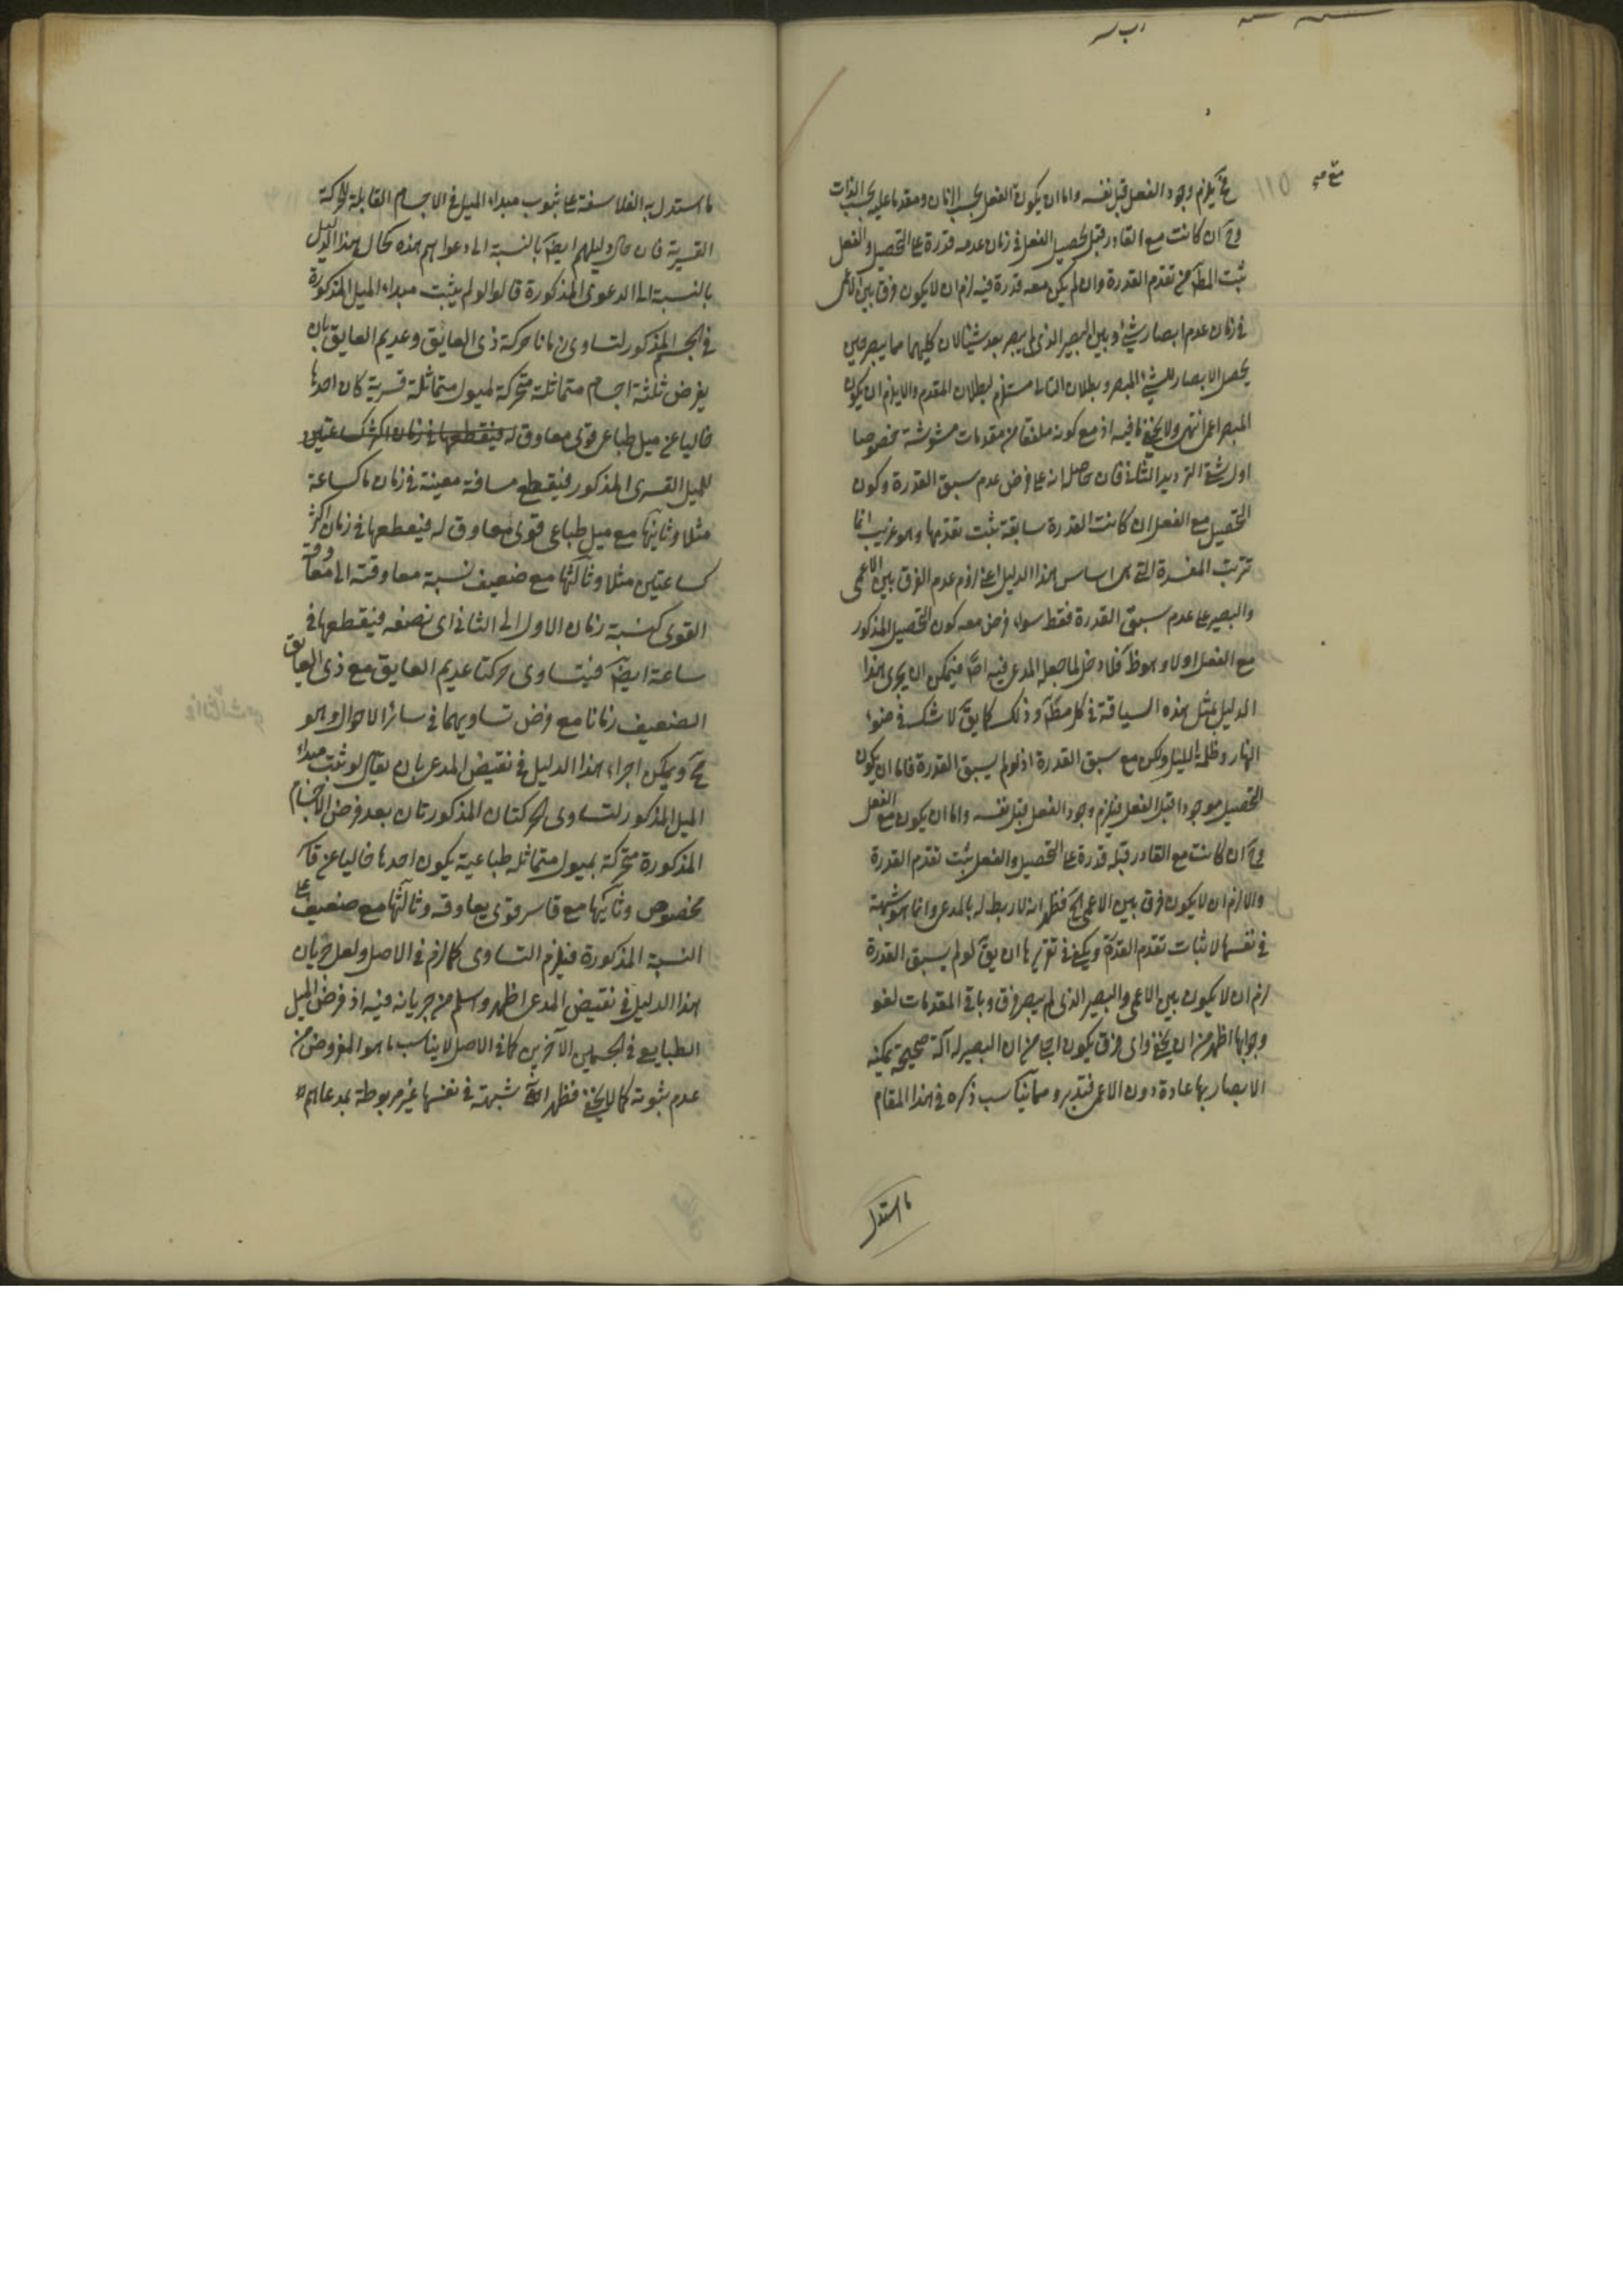 يلزم وجود الفعل قبل نفسه واما ان يكون الفعل بحسب الزمان ومقدما عليه بحسب الذات
وح ان كانت مع القادر قبل تحصيل الفعل في زمان عدمه قدرة على التحصيل والفعل
ثبت المط من تقدم القدرة وان لم يكن معه قدرة فيه لزم ان لا يكون فرق بين الاعمى
في زمان عدم ابصار شئ وبين البصير الذي لم يبصر بعد شيئا لان كليهما مما يبصر حين
يحصل الابصار للشئ المبصر وبطلان التالى مستلزم لبطلان المقدم والا يلزم ان يكون
المبصر اعمى انتهى ولا يخفى ما فيه اذ مع كونه ملفقا من مقدمات مشوشة مخصوصا
اول شق الترديد الثانى فان حاصله انه على فرض عدم سبق القدرة وكون
التحصيل مع الفعل ان كانت القدرة سابقة ثبت تقدمها وهو غريب انما
ترتب المفسدة التى هى اساس هذا الدليل اعنى لزوم عدم الفرق بين الاعمى
والبصير على عدم سبق القدرة فقط سواء فرض معه كون التحصيل المذكور
مع الفعل اولا وهو ظ فلا دخل لما جعله المدعى فيه اصلا فيمكن ان يجرى هذا
الدليل بمثل هذه السياقة في كل مط وذلك كما يق لا شك في ضوء
النهار وظلمة الليل ولكن مع سبق القدرة اذ لو لم يسبق القدرة فاما ان يكون
التحصيل موجودا قبل الفعل فيلزم وجود الفعل قبل نفسه واما ان يكون مع الفعل
وح ان كانت مع القادر قبله قدرة على التحصيل والفعل ثبت تقدم القدرة
والا لزم ان لا يكون فرق بين الاعمى الخ فظهر انه لا ربط له بالمدعى وانما هو شبهة
في نفسها لاثبات تقدم القدرة ويكفى في تقريرها ان يق لو لم يسبق القدرة
لزم ان لا يكون بين الاعمى والبصير الذي لم يبصر فرق وباقى المقدمات لغو
وجوابها اظهر من ان يخفى واى فرق يكون اجلى من ان البصير له آلة صحيحة يمكنه
الابصار بها عادة دون الاعمى فتدبر ومما يناسب ذكره في هذا المقام
ما استدل
ما استدل به الفلاسفة على ثبوت مبداء الميل في الاجسام القابلة للحركة
القسرية فان حال دليلهم ايضا بالنسبة الى دعواهم هذه كحال هذا الدليل
بالنسبة الى الدعوى المذكورة قالوا لو لم يثبت مبداء الميل المذكورة
في الجسم المذكور لتساوى زمانا حركة ذى العايق وعديم العايق بان
يفرض ثلثة اجسام متماثلة متحركة لميول متماثلة قسرية كان احدها
خاليا عن ميل طباعى قوى معاوق له فيقطعها في زمان اكثر كساعتين
للميل القسرى المذكور فيقطع مسافة معينة في زمان ما كساعة
مثلا وثانيها مع ميل طباعى قوى معاوق له فيقطعها في زمان اكثر
كساعتين مثلا وثالثها مع ضعيف نسبة معاوقته الى معاوقة
القوى كنسبة زمان الاول الى الثانى اى نصفه فيقطعها في
ساعة ايضا فيتساوى حركتا عديم العايق مع ذى العايق
الضعيف زمانا مع فرض تساويهما في سائر الاحوال وهو
مح ويمكن اجراء هذا الدليل في نقيض المدعى بان يقال لو ثبت مبداء
الميل المذكور لتساوى الحركتان المذكورتان بعد فرض الاجسام
المذكورة متحركة بميول متماثله طباعية يكون احدها خاليا عن قاسر
مخصوص وثانيها مع قاسر قوى يعاوقه وثالثها مع ضعيف على
النسبة المذكورة فيلزم التساوى كما لزم في الاصل ولعل جريان
هذا الدليل في نقيض المدعى اظهر واسلم من جريانه فيه اذ فرض الميل
الطبايع في الجسمين الآخرين كما في الاصل لا يناسب ما هو المفروض من
عدم ثبوته كما لا يخفى فظهر انه شبهة في نفسها غير مربوطة بمدعاهم